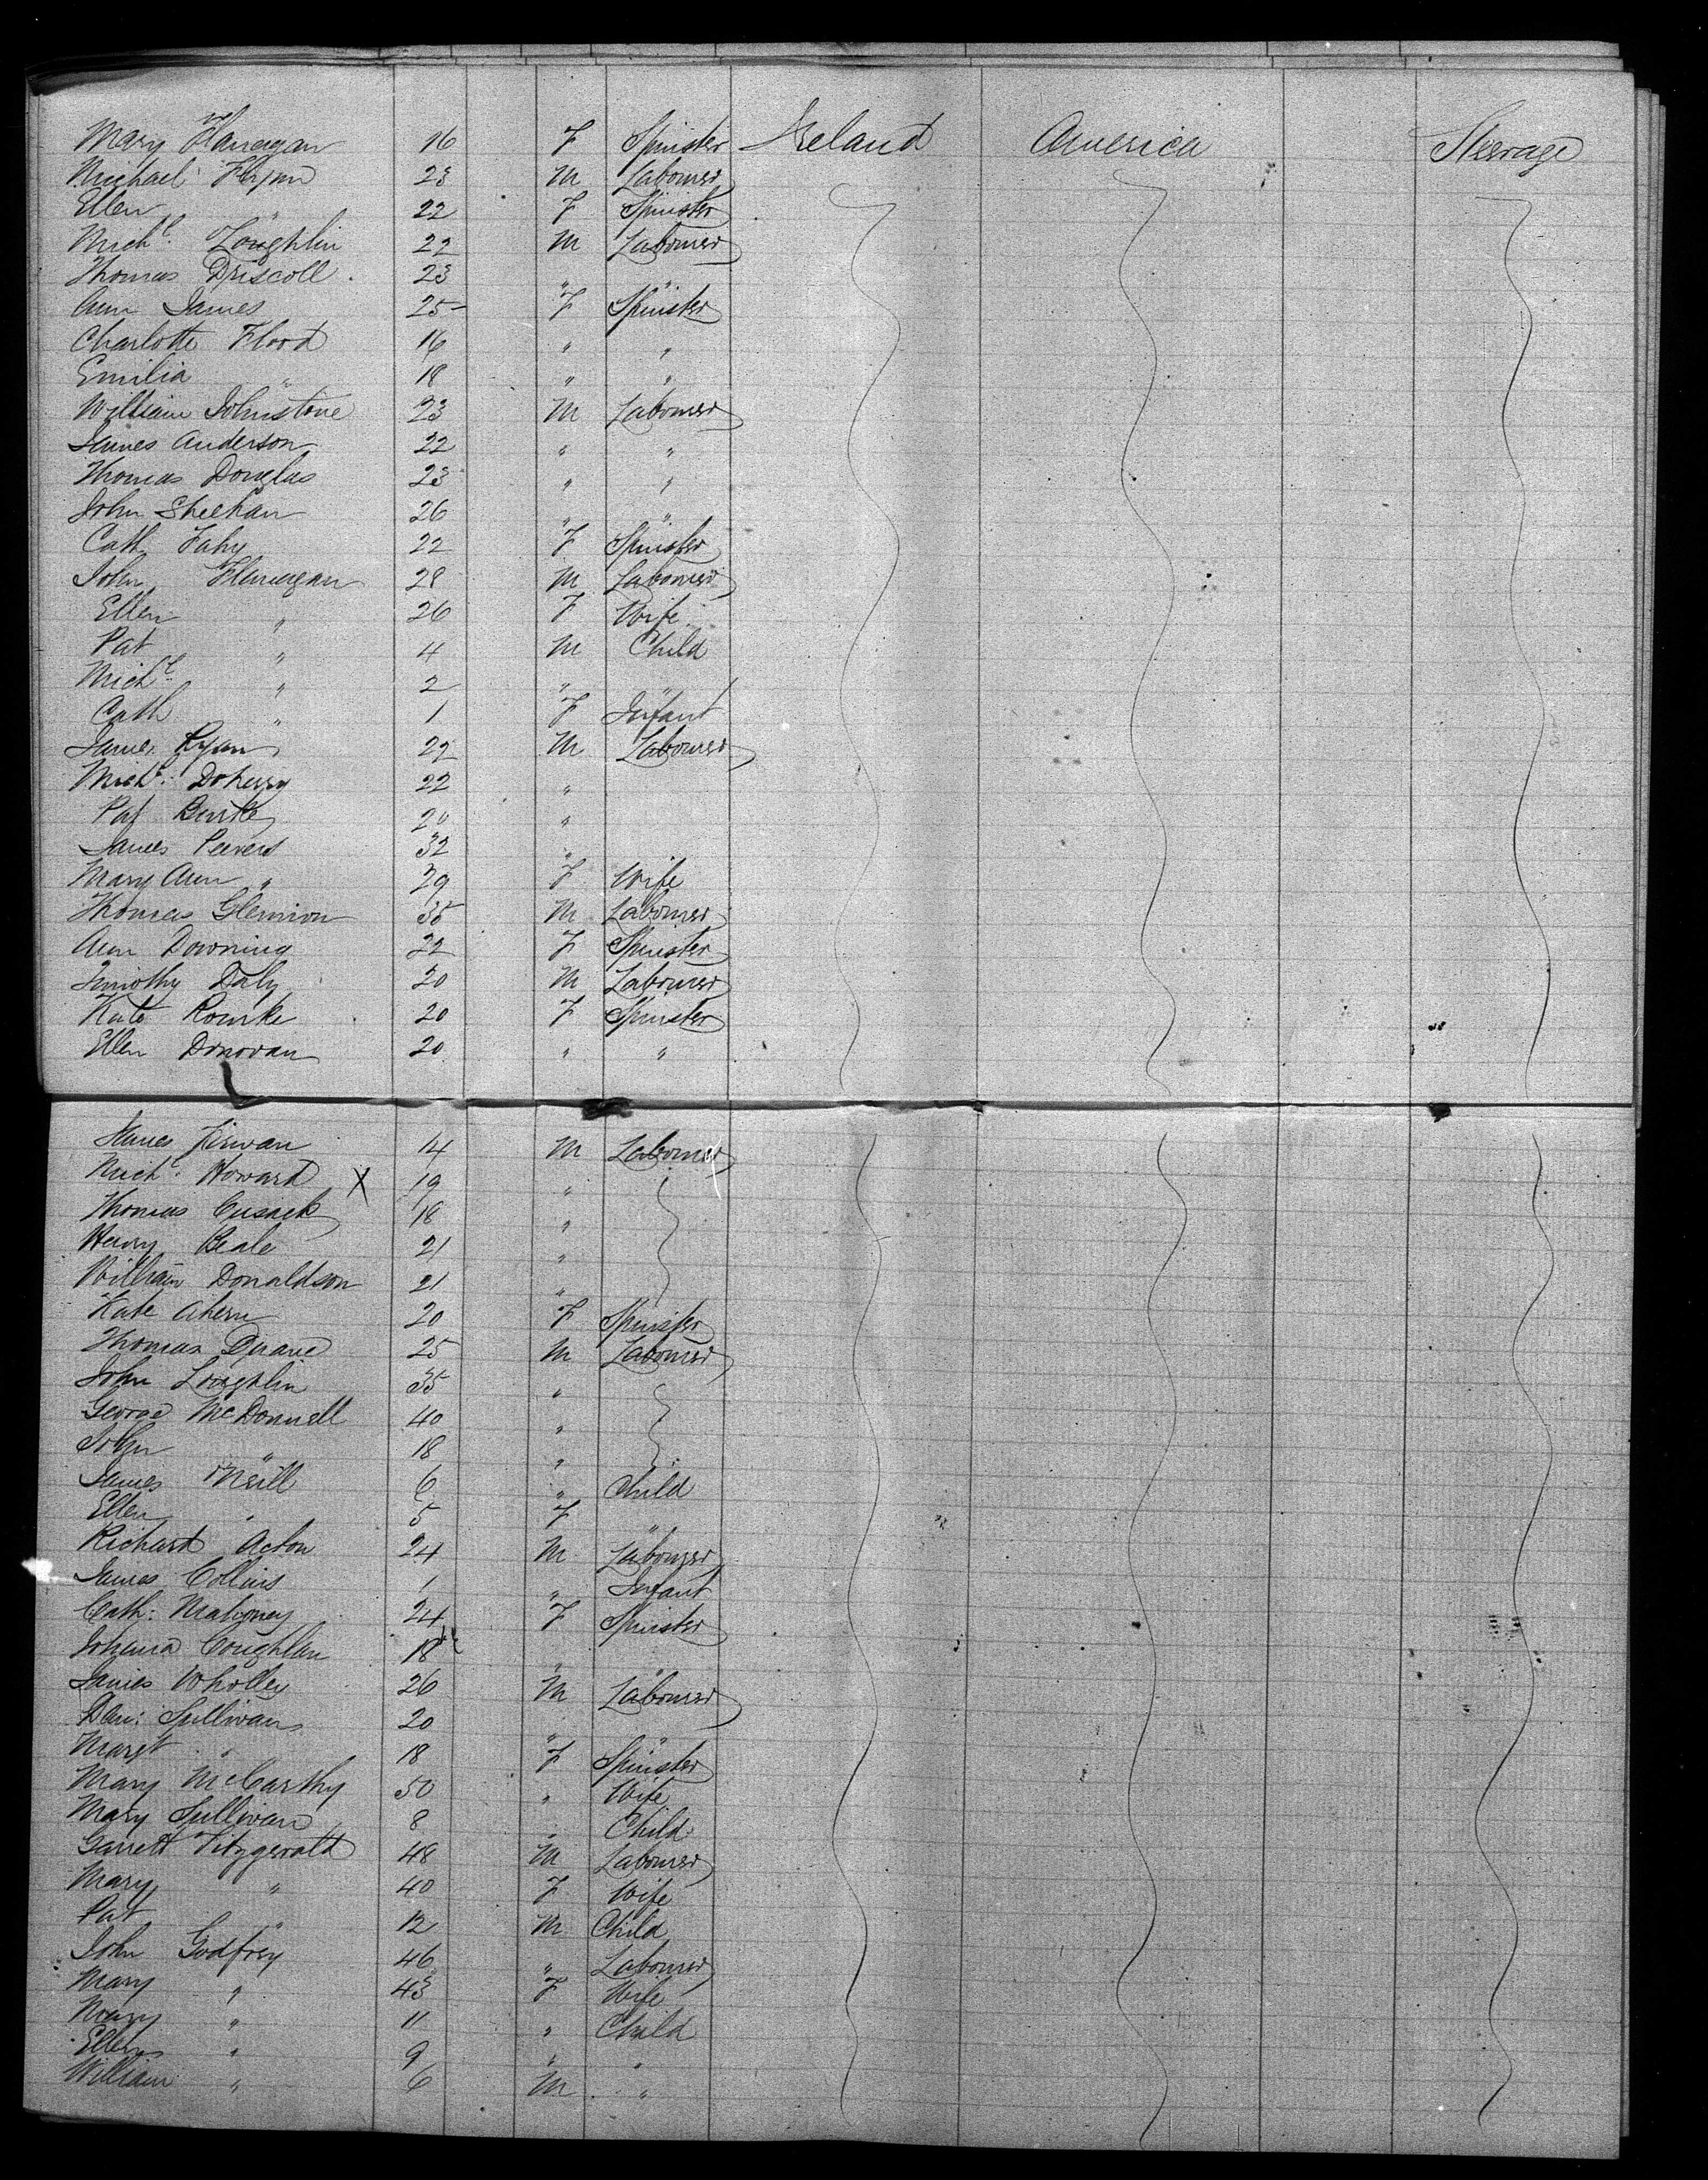 Mary Flanagan 16 F Spinster Ireland America Steerage
Michael Flynn 23 M Labourer
Ellen " 22 F Spinster
Michl. Loughlin 22 M Labourer
Thomas Driscoll 23 " "
Ann James 25 F Spinster
Charlotte Flood 16 " "
Emilia " 18 " "
William Johnstone 23 M Labourer
James Anderson 22 " "
Thomas Douglas 23 " "
John Sheehan 26 " "
Cath Fahy 22 F Spinster
John Flanagan 28 M Labourer
Ellen " 26 F Wife
Pat " 4 M Child
Michl. " 2 " "
Cath " 1 F Infant
James Ryan 22 M Labourer
Michl. Doherty 22 "
Pat Burke 20 "
James Peevers 32 "
Mary Ann " 29 F Wife
Thomas Glennon 35 M Labourer
Ann Downing 22 F Spinster
Timothy Daly 20 M Labourer
Kate Rourke 20 F Spinster
Ellen Donovan 20 " "
James Kirwan 14 M Labourer
Michl. Howard X 19 "
Thomas Cusack 18 "
Henry Beale 21 "
William Donaldson 21 "
Kate Ahern 20 F Spinster
Thomas Duane 25 M Labourer
John Loughlin 35 "
George McDonnell 40 "
John " 18 "
James O'Neill 6 " Child
Ellen " 5 F "
Richard Acton 24 M Labourer
James Collins 1 " Infant
Cath: Mahoney 24 F Spinster
Johana Coughlan 18 " "
James Wholley 26 M Labourer
Dan: Sullivan 20 " "
Margt " 18 F Spinster
Mary McCarthy 50 " Wife
Mary Sullivan 8 " Child
Garrett Fitzgerald 48 M Labourer
Mary " 40 F Wife
Pat " 12 M Child
John Godfrey 46 " Labourer
Mary " 43 F Wife
Mary " 11 " Child
Ellen " 9 " "
William " 6 M "